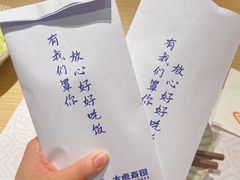 有我们罩你
放心好好吃饭
寿司
有我们罩你
放心好好吃饭